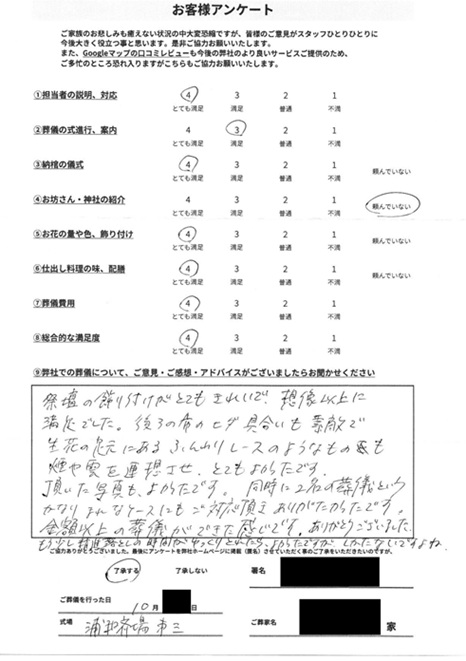 お客様アンケート
ご家族のお悲しみも癒えない状況の中大変恐縮ですが、皆様のご意見がスタッフひとりひとりに
今後大きく役立つ事と思います。是非ご協力お願いいたします。
また、Googleマップの口コミレビューも今後の弊社のより良いサービスご提供のため、
ご多忙のところ恐れ入りますがこちらもご協力お願いいたします。
①担当者の説明、対応 4 3 2 1
とても満足 満足 普通 不満
②葬儀の式進行、案内 4 3 2 1
とても満足 満足 普通 不満
③納棺の儀式 4 3 2 1 頼んでいない
とても満足 満足 普通 不満
④お坊さん・神社の紹介 4 3 2 1 頼んでいない
とても満足 満足 普通 不満
⑤お花の量や色、飾り付け 4 3 2 1 頼んでいない
とても満足 満足 普通 不満
⑥仕出し料理の味、配膳 4 3 2 1 頼んでいない
とても満足 満足 普通 不満
⑦葬儀費用 4 3 2 1
とても満足 満足 普通 不満
⑧総合的な満足度 4 3 2 1
とても満足 満足 普通 不満
⑨弊社での葬儀について、ご意見・ご感想・アドバイスがございましたらお聞かせください
祭壇の飾り付けがとてもきれいで、想像以上に
満足でした。後ろの布のヒダ具合いも素敵で
生花の足元にあるふんわりレースのようなもの
煙や雲を連想させ、とてもよかったです。
頂いた写真も、よかったです。同時に2名の葬儀という
かなりまれなケースにもご対応頂きありがたかったです。
金額以上の葬儀ができた感じです。ありがとうございました。
もう少し精進落としの時間がゆっくりとれたら、よかったですが しかたないですよね
ご協力ありがとうございました。最後にアンケートを弊社ホームページに掲載(匿名)させていただく事のご了承をいただきたいのですが、
了承する 了承しない 署名
ご葬儀を行った日 10月 日
式場 浦和斎場 第三 ご葬家名 家